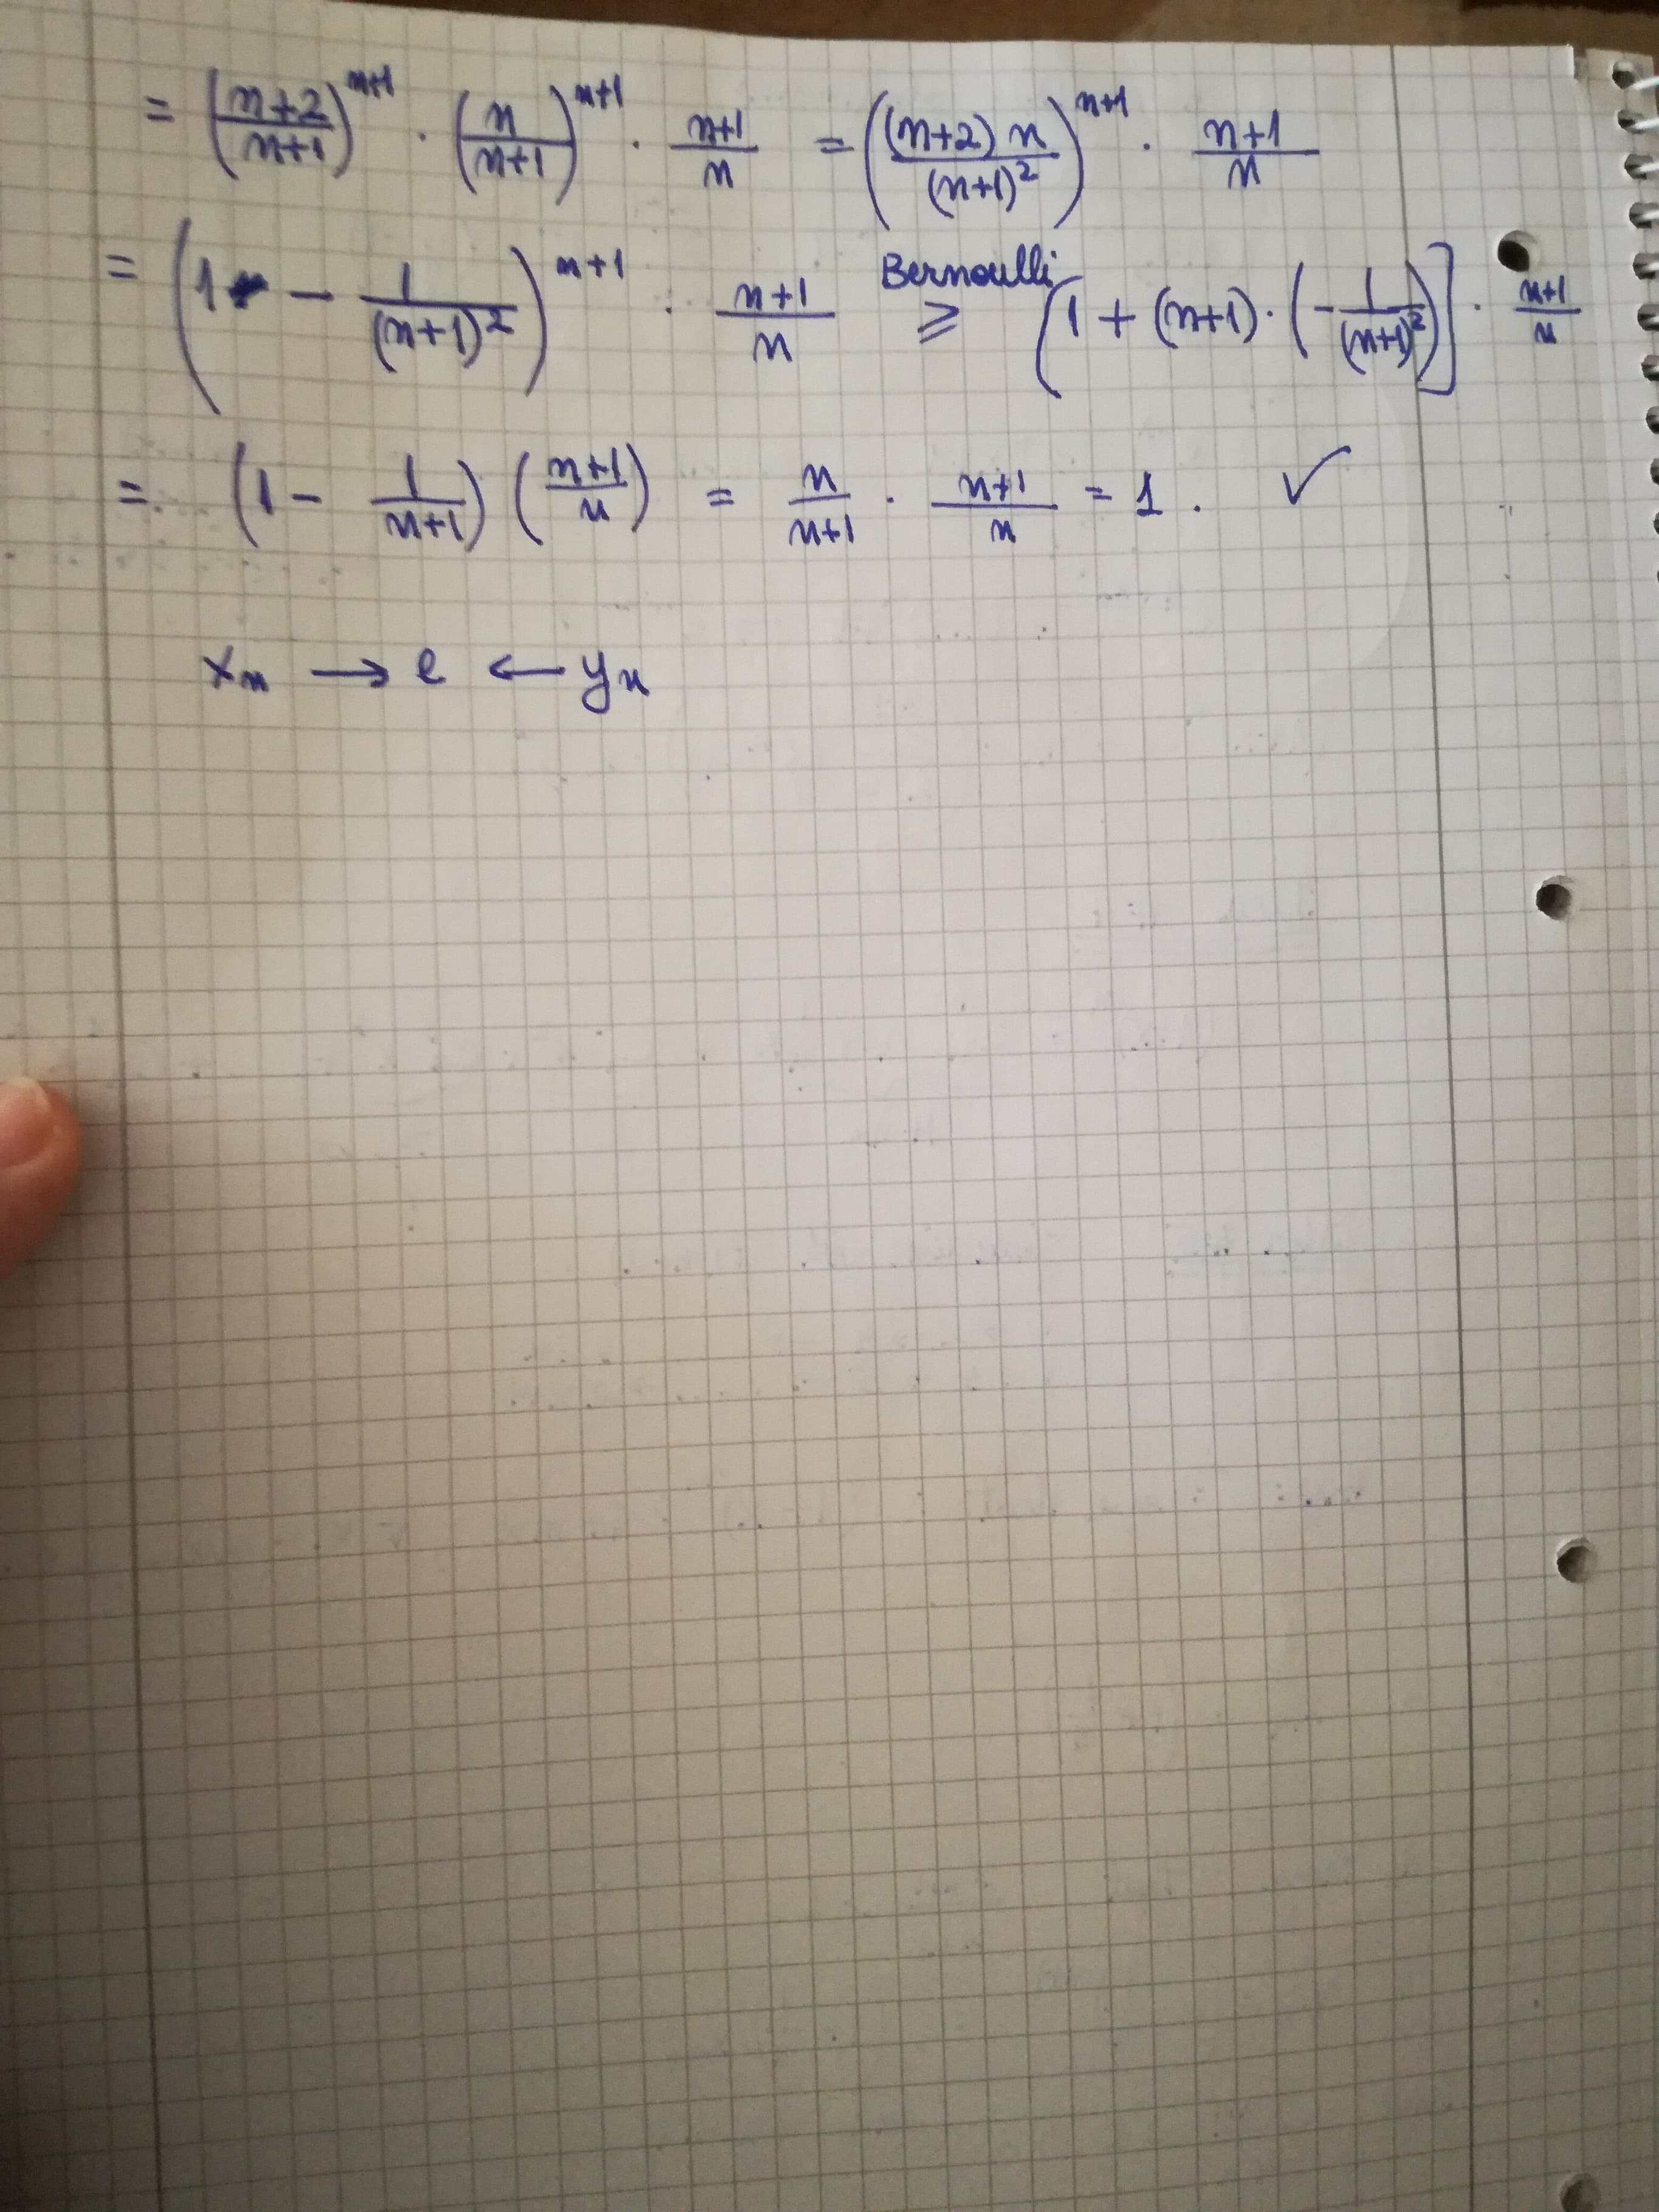 = ((n+2)/(n+1))^(n+1) · (n/(n+1))^(n+1) · (n+1)/n = ((n+2) n/(n+1)²)^(n+1) · (n+1)/n
= (1 - 1/(n+1)²)^(n+1) · (n+1)/n Bernoulli ≥ [1 + (n+1) · (-1/(n+1)²)] · (n+1)/n
= (1 - 1/(n+1)) ((n+1)/n) = n/(n+1) · (n+1)/n = 1 . ✓
xₙ → e ← yₙ